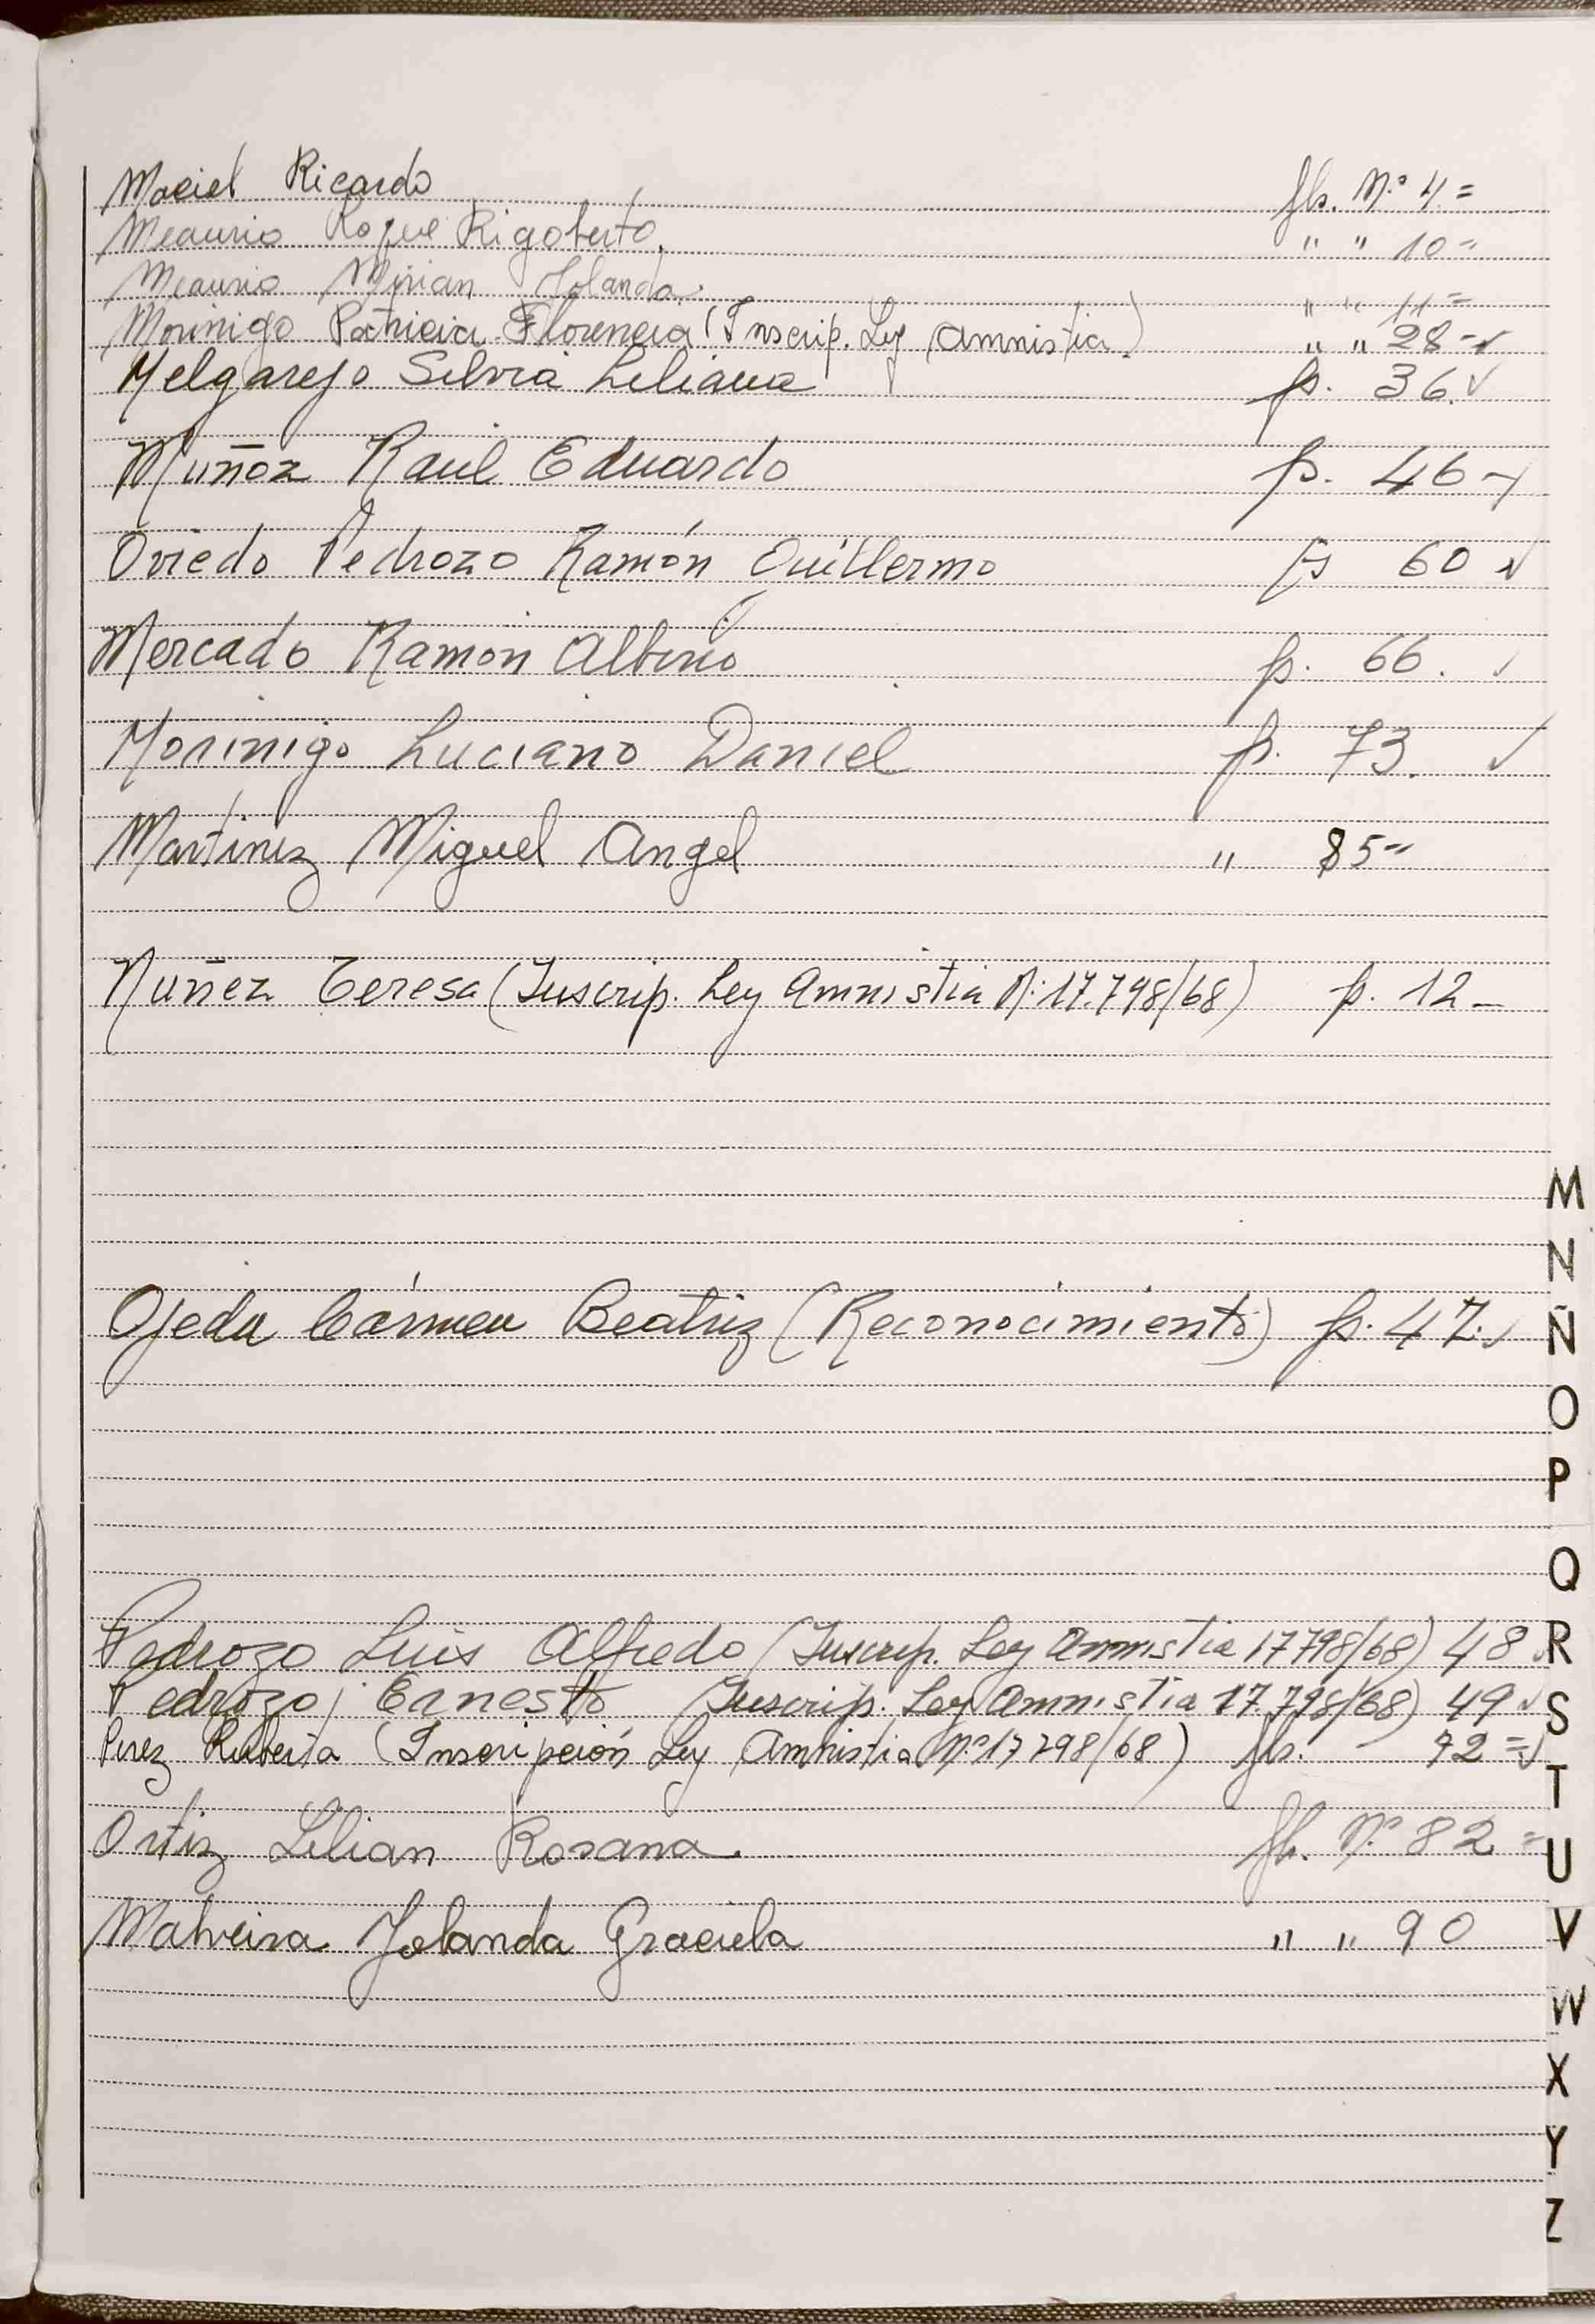 Maciel Ricardo fls. N.º 4 =
Meaurio Roque Rigoberto. " " 10 =
Meaurio Mirian Jolanda. " " 11 =
Morinigo Patricia Florencia (Inscrip. Ley Amnistia) " " 28 - ✓
Melgarejo Silvia Liliana fs. 36. ✓
Muñoz Raul Eduardo fs. 46 -
Oviedo Pedrozo Ramón Guillermo fs 60 ✓
Mercado Ramon Albino fs. 66. ✓
Morinigo Luciano Daniel fs. 73. ✓
Martinez Miguel Angel " 85 =
Nuñez Teresa (Inscrip. Ley Amnistia N: 17.798/68) fs. 12 -
Ojeda Cármen Beatriz (Reconocimiento) fs. 47. ✓
Pedrozo Luis Alfredo (Inscrip. Ley Amnistia 17798/68) 48 ✓
Pedrozo Ernesto (Inscrip. Ley Amnistia 17.798/68) 49 ✓
Perez Ruberta (Inscripción Ley Amnistia N.º 17798/68) fls. 72 = ✓
Ortiz Lilian Rosana. fls. N.º 82 =
Malveira Jolanda Graciela " " 90
M
N
Ñ
O
P
Q
R
S
T
U
V
W
X
Y
Z